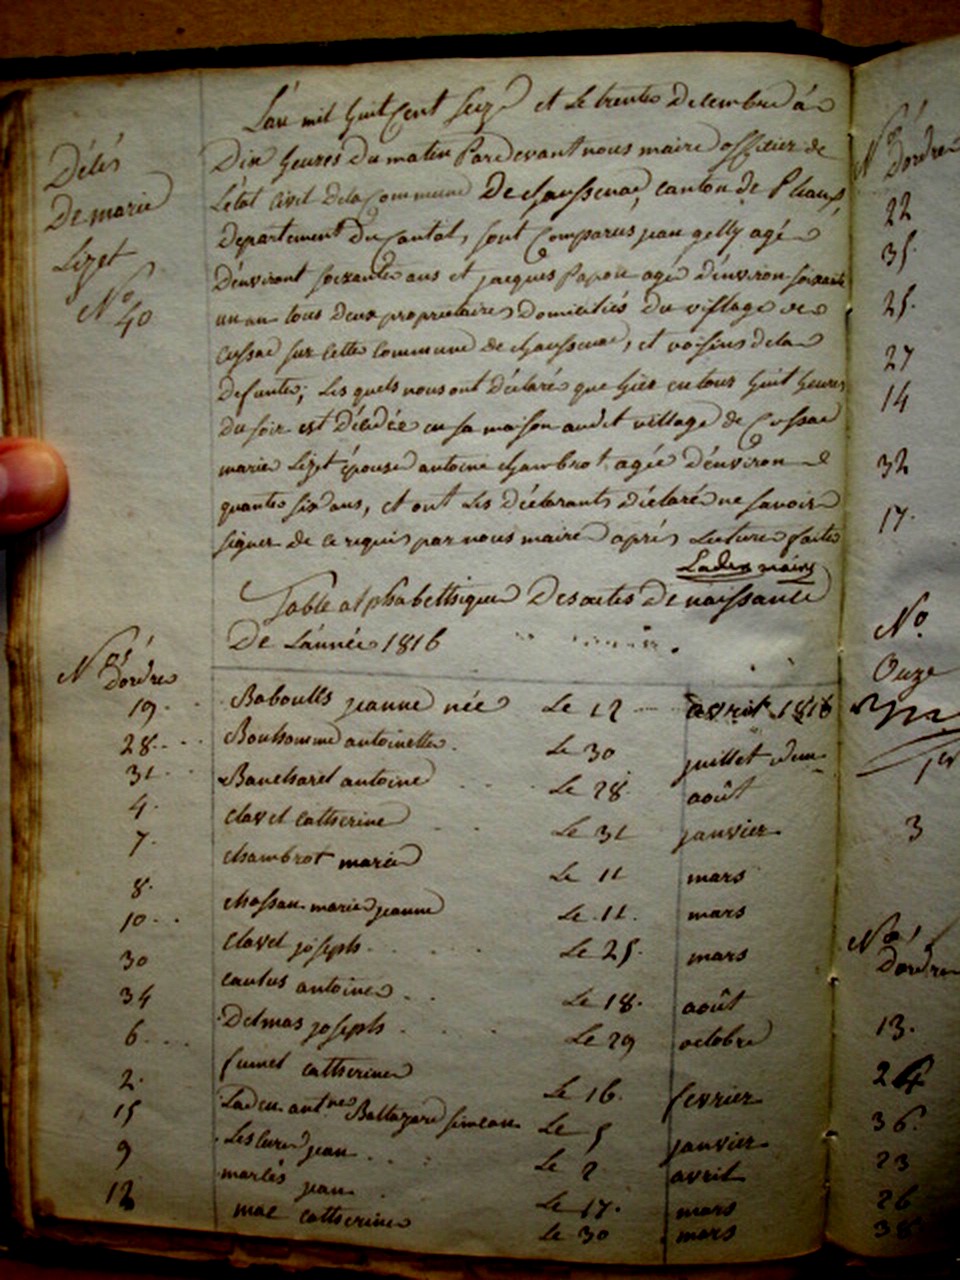 Décés
De marie
Lizet
N.o
40
L'an mil huit Cent seize et le trente décembre à
Dix heures du matin Pardevant nous maire officier de
L'état Civil de la Commune De chaussenac, canton de Pleaux,
Departement du Cantal, sont Comparus jean gelly agé
D'environt soixante ans et jacques Papon agé d'environ soixante
un an tous deux propriétaires Domiciliés du village de
Cussac sur cette Commune de chaussenac, et voisins de la
Defunte; Les quels nous ont déclaré que hier en tour huit heures
Du soir est Décédée en sa maison audit village de Cussac
marie Lizet épouse antoine chambrot, agée d'environ
quante six ans, et ont Les Déclarants déclaré ne savoir
signer de ce requis par nous maire après Lecture faite
Table alphabettique Des actes De naissance
De L'année 1816
Nos d'ordre
19. Baboulls jeanne née Le 12 avril 1816
28. Bonhomme antoinette. Le 30 juillet idem
31. Bancharel antoine Le 28 août
4. Clavel Catherine Le 31 janvier
7. chambrot marie Le 11 mars
8. marie jeanne Le 11. mars
10. Clavel joseph Le 25. mars
30 antoine Le 18. août
34 Delmas joseph Le 29 octobre
6. fumel Catherine Le 16. fevrier
2. Laden ant.ne Baltazard simean Le 5 janvier
15 Lescure jean Le 2 avril
9 marlés jean Le 17. mars
12 mac Catherine Le 30 mars
Nos d'ordre
22
35.
25.
27
14
32
17.
N.o
Onze
1er
3
Nos d'ordre
13.
24
36.
23
26
38